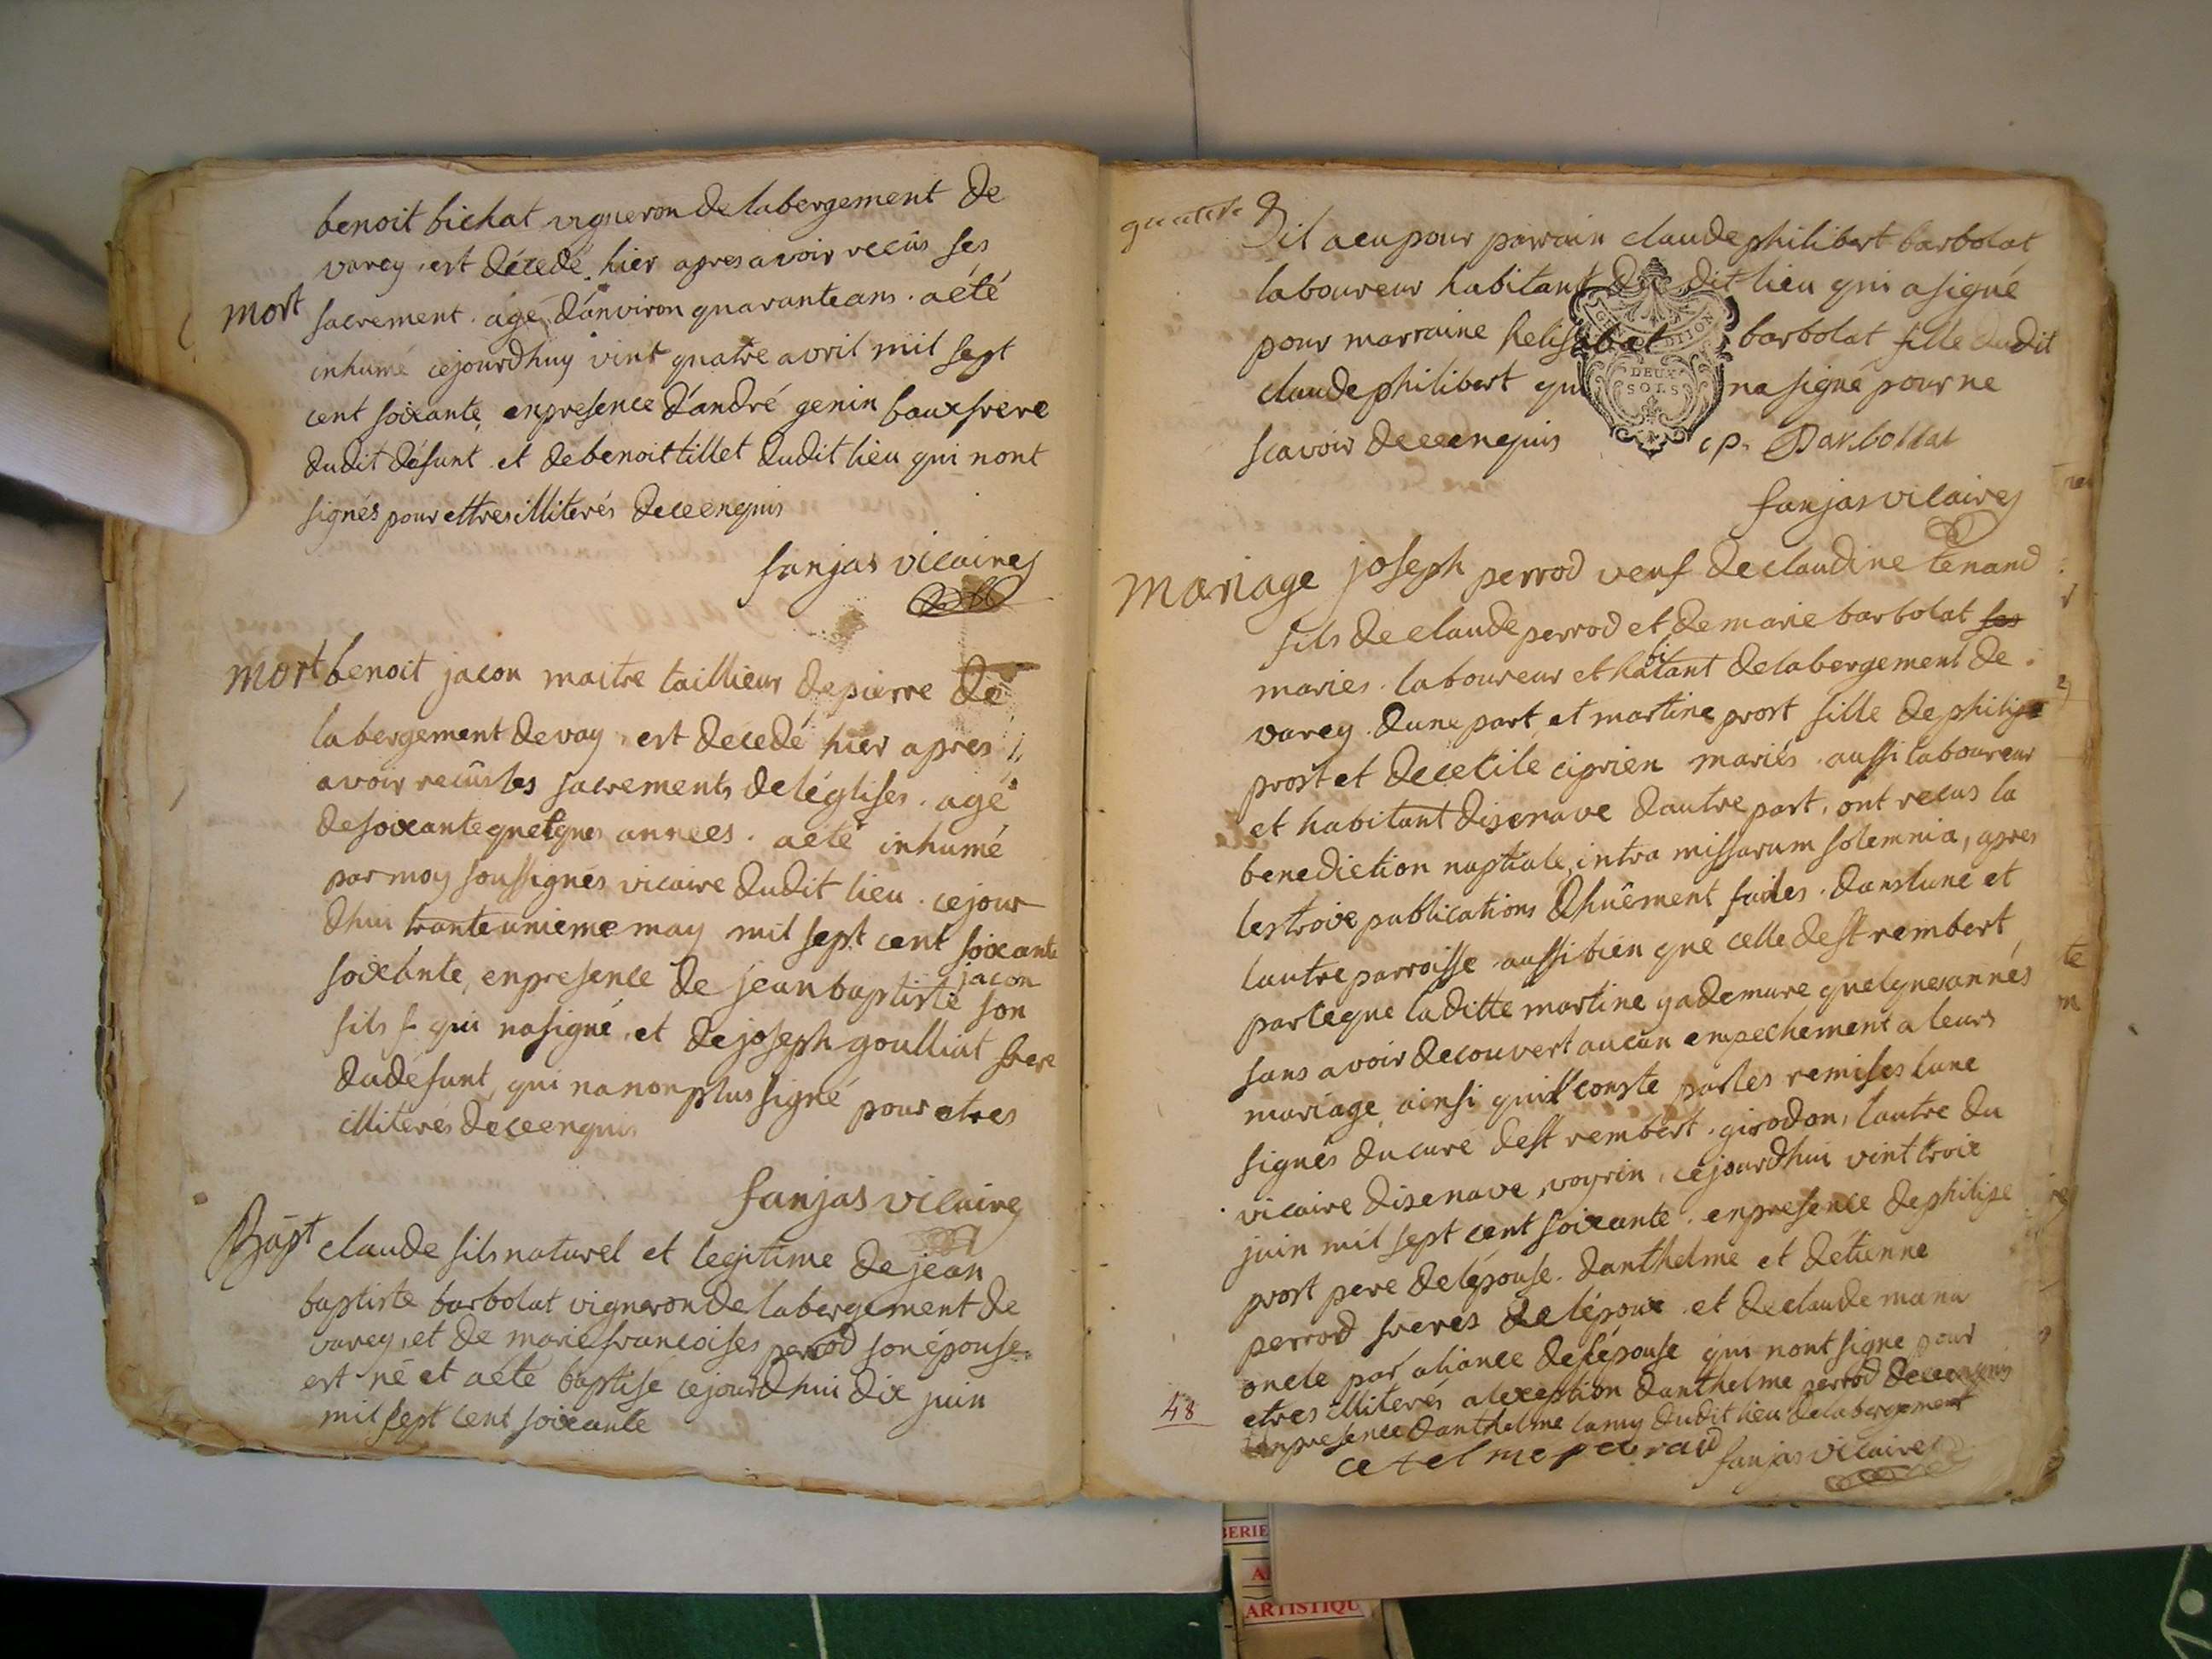 benoit bichat vigneron de labergement de
varey, est décedé hier apres avoir recûs ses
mort sacrement. agé d'anviron quarante ans. a été
inhumé cejourdhuy vint quatre avril mil sept
cent soixante, en presence d'andré genin baux frere
dudit défunt et de benoit tillet dudit lieu qui nont
signés pour ettres illiterés de ce enquis
fanjas vicaire
mort benoit jacon maitre taillieur de pierre de
labergement de vay, est decedé hier apres
avoir recûs les sacrements de léglises. agé
de soixante quelques années. a eté inhumé
par moy soussignés vicaire dudit lieu. cejour
dhui trante unieme may mil sept cent soixante
soixante, en presence de jean baptiste jacon son
fils qui na signé, et de joseph goulliat frere
du défunt, qui na non plus signé pour etres
illiterés de ce enquis
fanjas vicaire
Bapt claude fils naturel et legitime de jean
baptiste barbolat vigneron de labergement de
varey, et de marie francoises perrod son épouse.
est né et a eté baptisé cejourdhui dix juin
mil sept cent soixante
dit a eu pour parrain claude philibert barbolat
laboureur habitant du dit lieu qui a signé
pour marraine helisabet barbolat fille dudit
claude philibert qui na signé pour ne
scavoir de ce enquis c p. Barbollat
GEN DITION
DEUX
SOLS
fanjas vicaire
Mariage joseph perrod veuf de claudine tenand
fils de claude perrod et de marie barbolat ses
maries. laboureur et habitant de labergement de
varey. dune part, et martine prost fille de philipe
prost et de cecile ciprien mariés aussi laboureur
et habitant disenave dautre part, ont recus la
benediction nuptiale intra missarum solemnia, apres
les troix publications dhuëment faites. dans lune et
lautre parroisse aussi bien que celle de st rembert,
parceque laditte martine y a demure quelques annés
sans avoir decouvert aucun empechement a leurs
mariage, ainsi quil conste par les remises lune
signés du curé de st rembert. girodon, lautre du
vicaire disenave, voyrin, cejourdhui vint troix
juin mil sept cent soixante. en presence de philipe
prost pere de lépouse. danthelme et detienne
perrod freres de lépoux. et de claude mana
oncle par aliance de lépouse qui nont signe pour
etres illiterés alexeption danthelme perrod de ce enquis
en presence danthelme lamy dudit lieu de labergement
48
fanjas vicaire